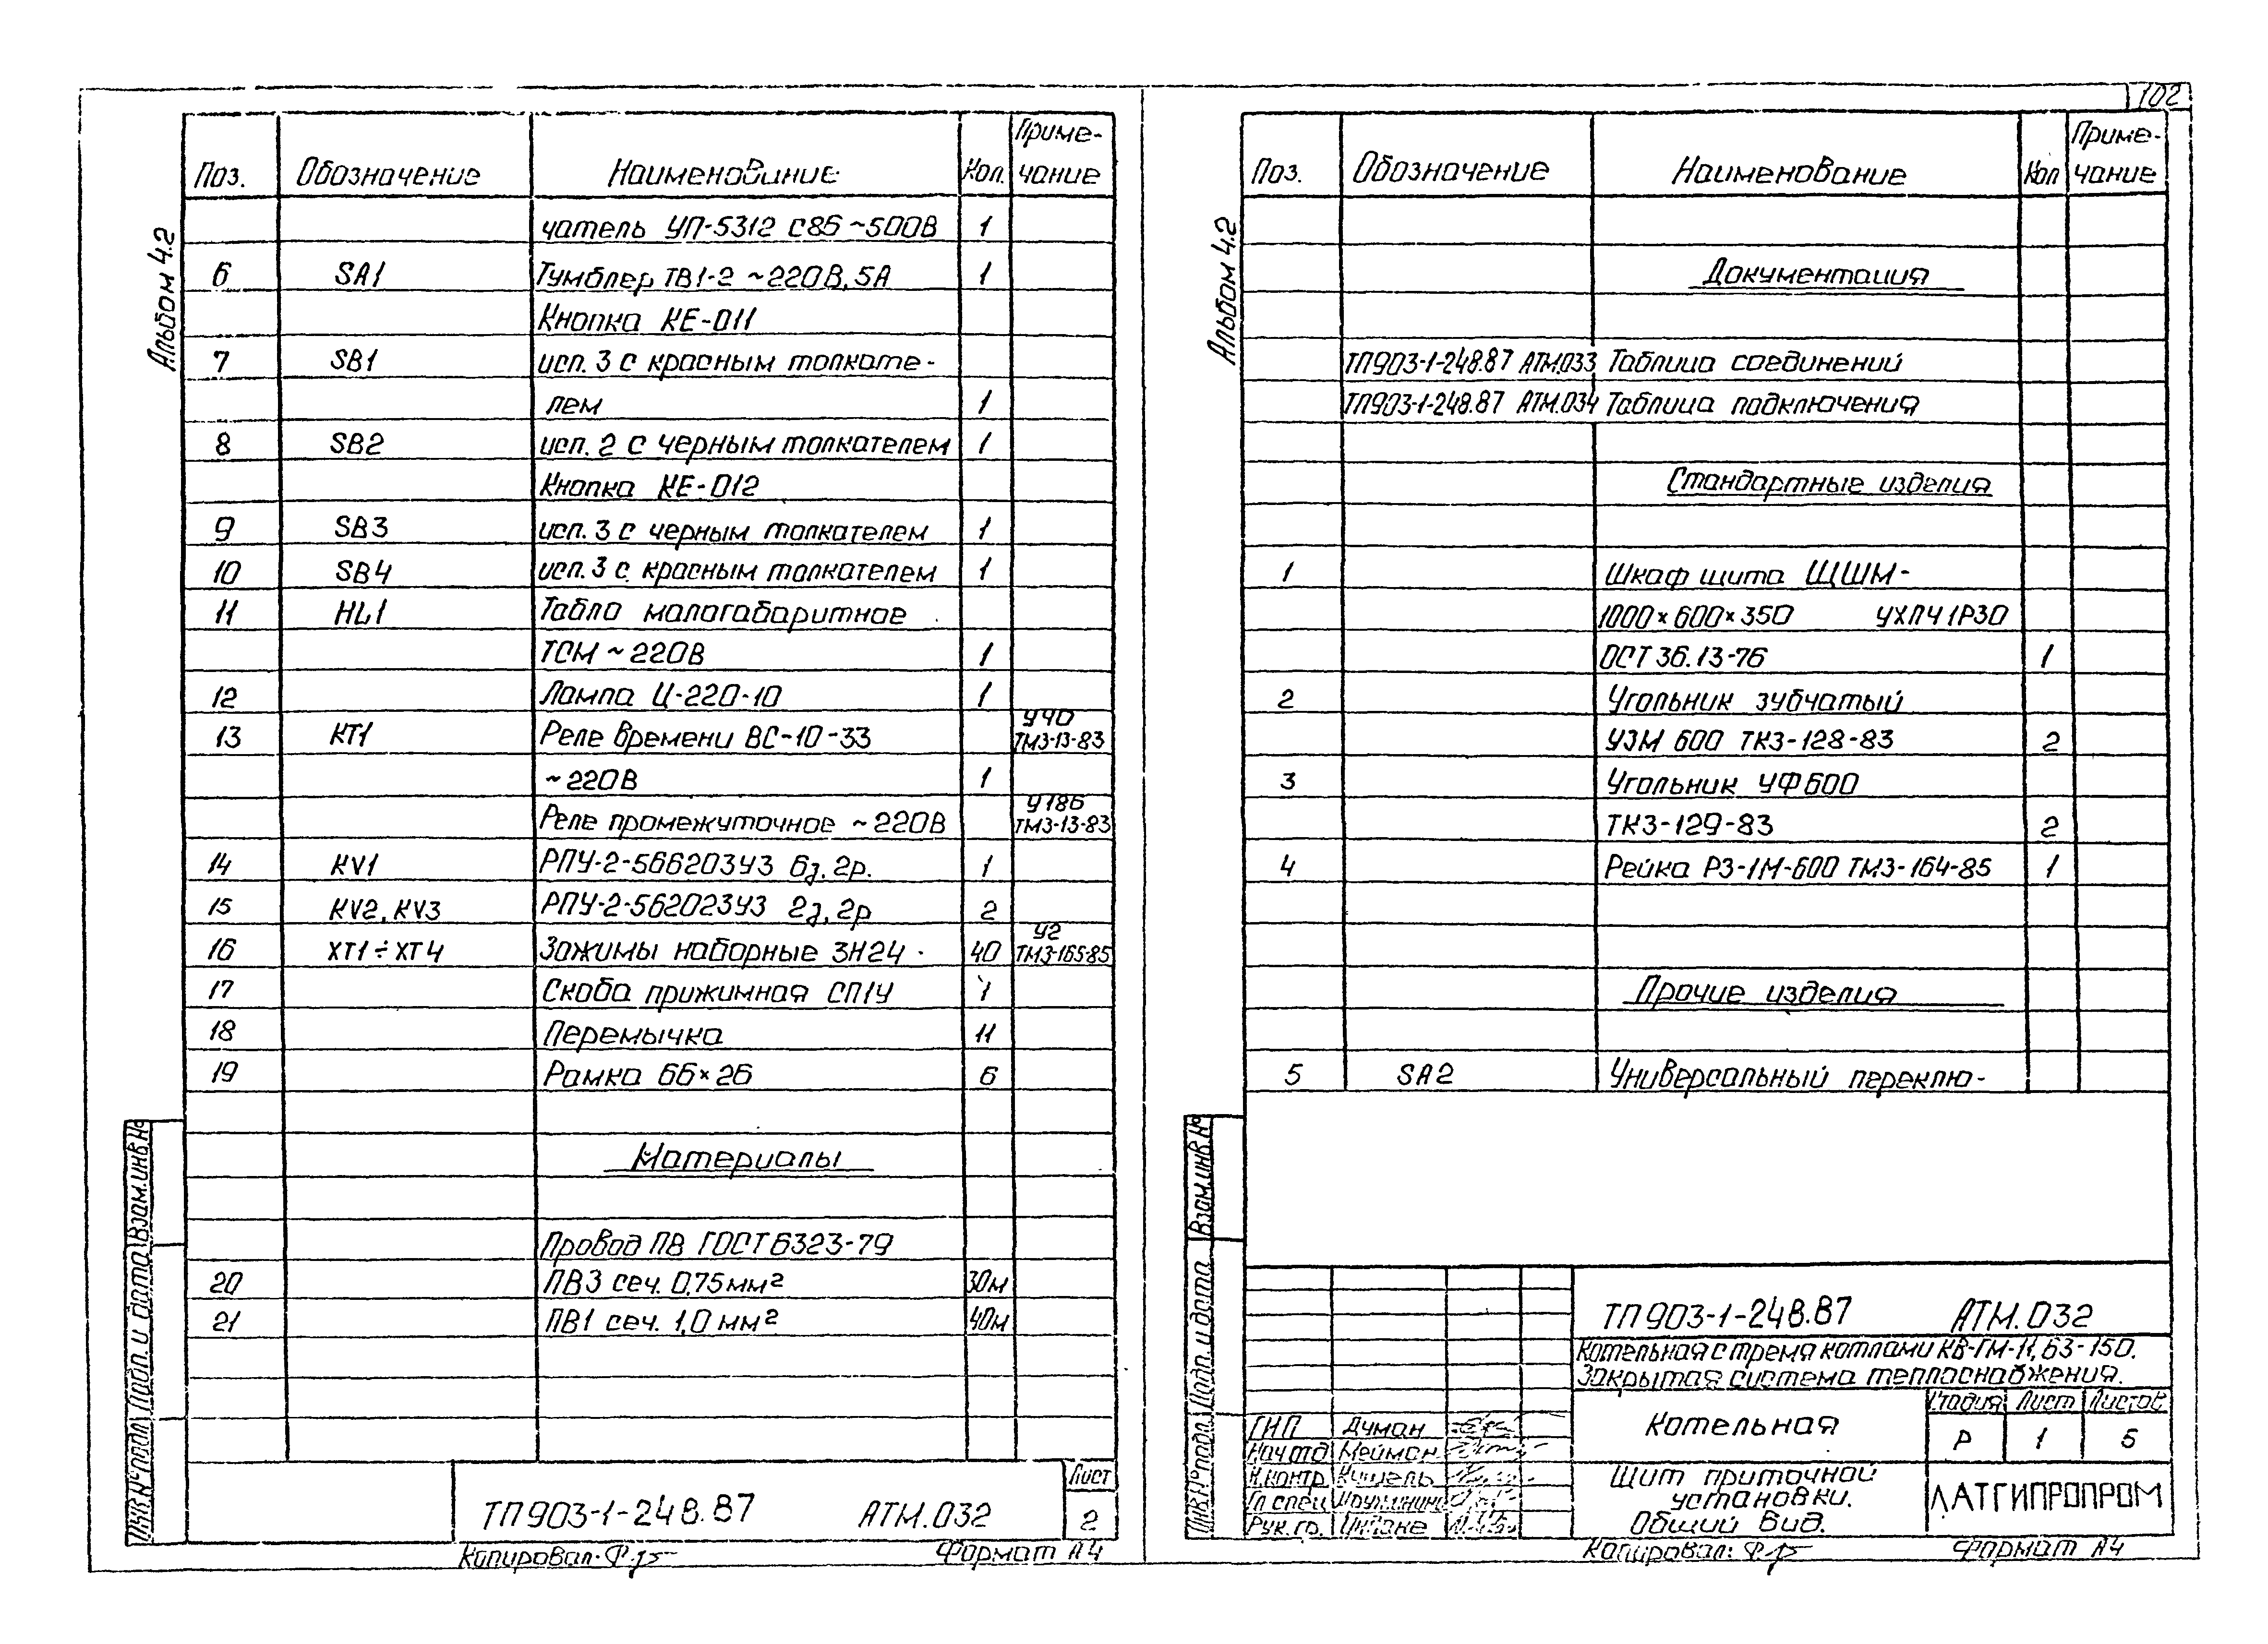 102
Альбом 4.2
Поз. Обозначение Наименование Кол. Приме-чание
чатель УП-5312 С86 ~500В 1
6 SA1 Тумблер ТВ1-2 ~220В, 5А 1
Кнопка КЕ-011
7 SB1 исп. 3 с красным толкате-
лем 1
8 SB2 исп. 2 с черным толкателем 1
Кнопка КЕ-012
9 SB3 исп. 3 с черным толкателем 1
10 SB4 исп. 3 с красным толкателем 1
11 HL1 Табло малогабаритное
ТСМ ~220В 1
12 Лампа Ц-220-10 1
13 КТ1 Реле времени ВС-10-33 У40 ТМ3-13-83
~220В 1
Реле промежуточное ~220В У186 ТМ3-13-83
14 KV1 РПУ-2-566203У3 6з, 2р. 1
15 KV2, KV3 РПУ-2-562023У3 2з, 2р 2
16 XT1÷XT4 Зажимы наборные ЗН24 40 У2 ТМ3-165-85
17 Скоба прижимная СП1У 1
18 Перемычка 11
19 Рамка 66×26 6
Материалы
Провод ПВ ГОСТ 6323-79
20 ПВ3 сеч. 0,75мм² 30м
21 ПВ1 сеч. 1,0 мм² 40м
Инв.№ подл. Подп. и дата Взам.инв.№
ТП 903-1-248.87 АТМ.032
Лист
2
Копировал: Формат А4
Альбом 4.2
Поз. Обозначение Наименование Кол Приме-чание
Документация
ТП903-1-248.87 АТМ.033 Таблица соединений
ТП903-1-248.87 АТМ.034 Таблица подключения
Стандартные изделия
1 Шкаф щита ЩШМ-
1000×600×350 УХЛЧ 1Р30
ОСТ 36.13-76 1
2 Угольник зубчатый
УЗМ 600 ТК3-128-83 2
3 Угольник УФ600
ТК3-129-83 2
4 Рейка Р3-1М-600 ТМ3-164-85 1
Прочие изделия
5 SA2 Универсальный переклю-
Инв.№ подл. Подп. и дата Взам.инв.№
ТП 903-1-248.87 АТМ.032
Котельная с тремя котлами КВ-ГМ-11,63-150.
Закрытая система теплоснабжения.
Котельная
Стадия Лист Листов
Р 1 5
ГИП Думан
Нач отд Мейман
Н.контр. Кушель
Гл спец
Рук. гр.
Щит приточной
установки.
Общий вид.
ЛАТГИПРОПРОМ
Копировал: Формат А4